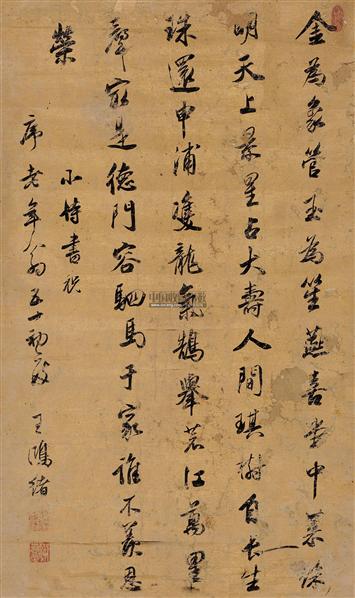 金為象管玉為笙燕喜堂中
明天上景星占大壽人間琪樹自長生
珠還申浦雙龍氣鵠舉江萬里
聲最是德門容駟馬于家誰不羨恩
榮
小詩書祝
序老年翁五十初度 王鴻緒